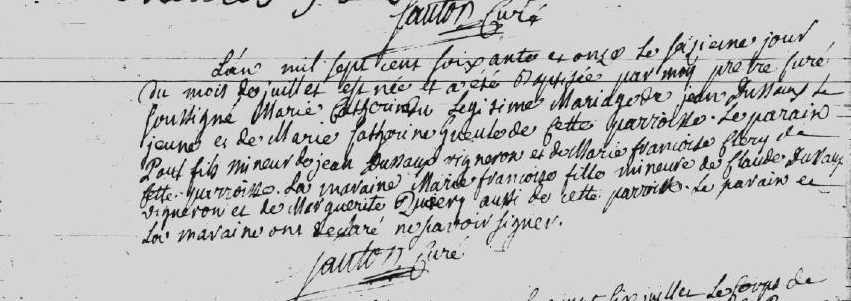 Santon Curé
L'an mil sept cent soixante et onze le sezieme jour
du mois de juillet est née et a été Baptisée par moy pretre curé
soussigné Marie Catherine du Legitime Mariage de jean Dussaux le
jeune et de Marie Catherine Gueule de cette parroisse. Le parain
Paul fils mineur de jean Dussaux vigneron et de Marie francoise flery de
cette parroisse. La maraine Marie francoise fille mineure de Claude Dussaux
vigneron et de Marguerite aussi de cette parroisse. Le parain et
La maraine ont declaré ne savoir signer.
Santon Curé
juillet Le corps de